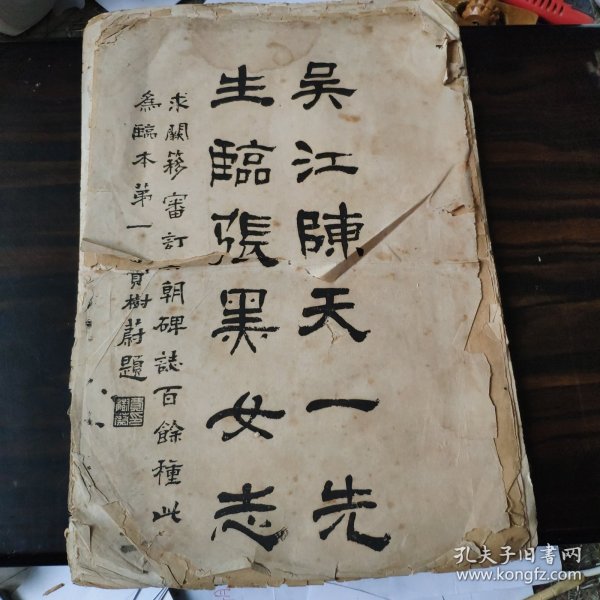 吴江陳天一先
生臨張黑女志
求闕簃審訂 朝碑誌百餘種此
為臨本第一 樹蔚題
孔夫子旧书网
www.kongfz.com